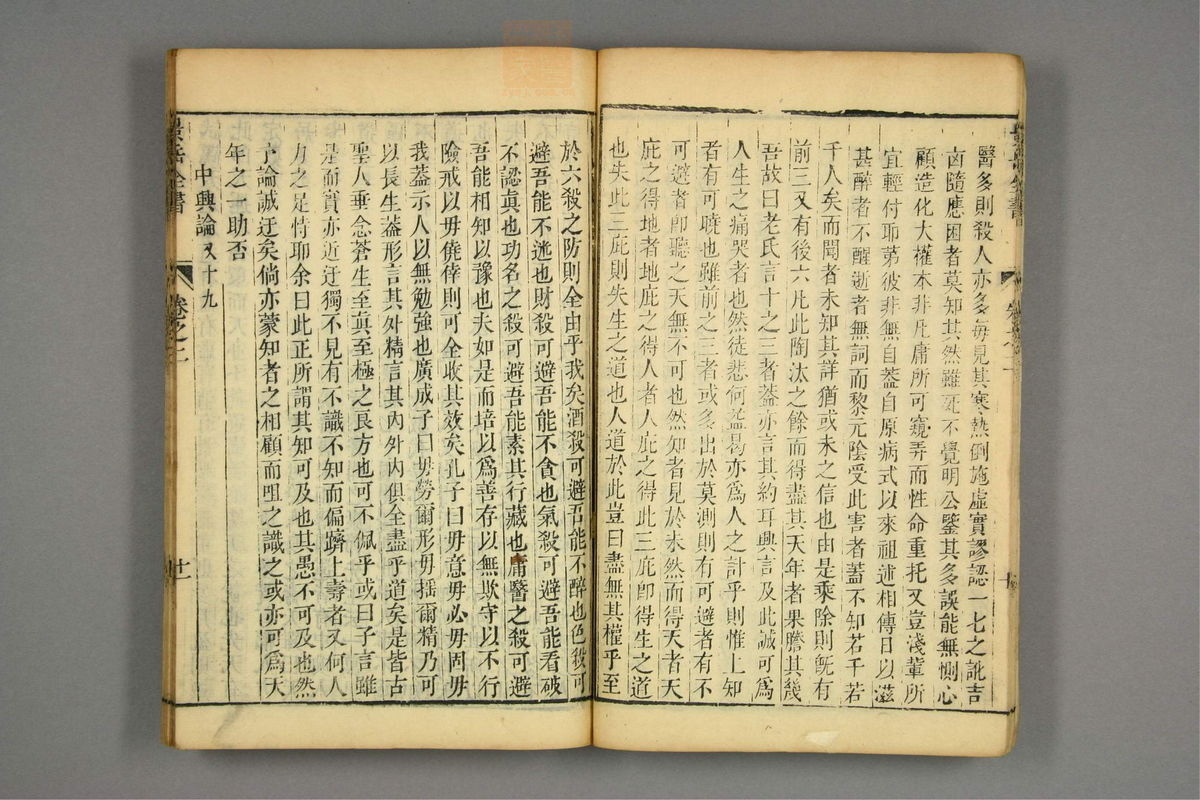 醫多則殺人亦多每見其寒熱倒施虛實謬認一七之訛吉
凶隨應困者莫知其然雖死不覺明公鑒其多誤能無惻心
顧造化大權本非凡庸所可窺弄而性命重托又豈淺輩所
宜輕付耶第彼非無自蓋自原病式以來祖述相傳日以滋
甚醉者不醒逝者無詞而黎元陰受此害者蓋不知若千若
千人矣而聞者未知其詳猶或未之信也由是乘除則旣有
前三又有後六凡此陶汰之餘而得盡其天年者果贍其幾
吾故曰老氏言十之三者蓋亦言其約耳興言及此誠可爲
人生之痛哭者也然徒悲何益曷亦爲人之計乎則惟上知
者有可曉也雖前之三者或多出於莫測則有可避者有不
可避者卽聽之天無不可也然知者見於未然而得天者天
庇之得地者地庇之得人者人庇之得此三庇卽得生之道
也失此三庇則失生之道也人道於此豈曰盡無其權乎至
於六殺之防則全由乎我矣酒殺可避吾能不醉也色殺可
避吾能不迷也財殺可避吾能不貪也氣殺可避吾能看破
不認眞也功名之殺可避吾能素其行藏也庸醫之殺可避
吾能相知以豫也夫如是而培以爲善存以無欺守以不行
險戒以毋僥倖則可全收其效矣孔子曰毋意毋必毋固毋
我蓋示人以無勉強也廣成子曰毋勞爾形毋搖爾精乃可
以長生蓋形言其外精言其內外內俱全盡乎道矣是皆古
聖人垂念蒼生至眞至極之良方也可不佩乎或曰子言雖
是而實亦近迂獨不見有不識不知而偏躋上壽者又何人
力之足恃耶余曰此正所謂其知可及也其愚不可及也然
予論誠迂矣倘亦蒙知者之相顧而咀之識之或亦可爲天
年之一助否
中興論又十九
景岳全書
卷之二
十二